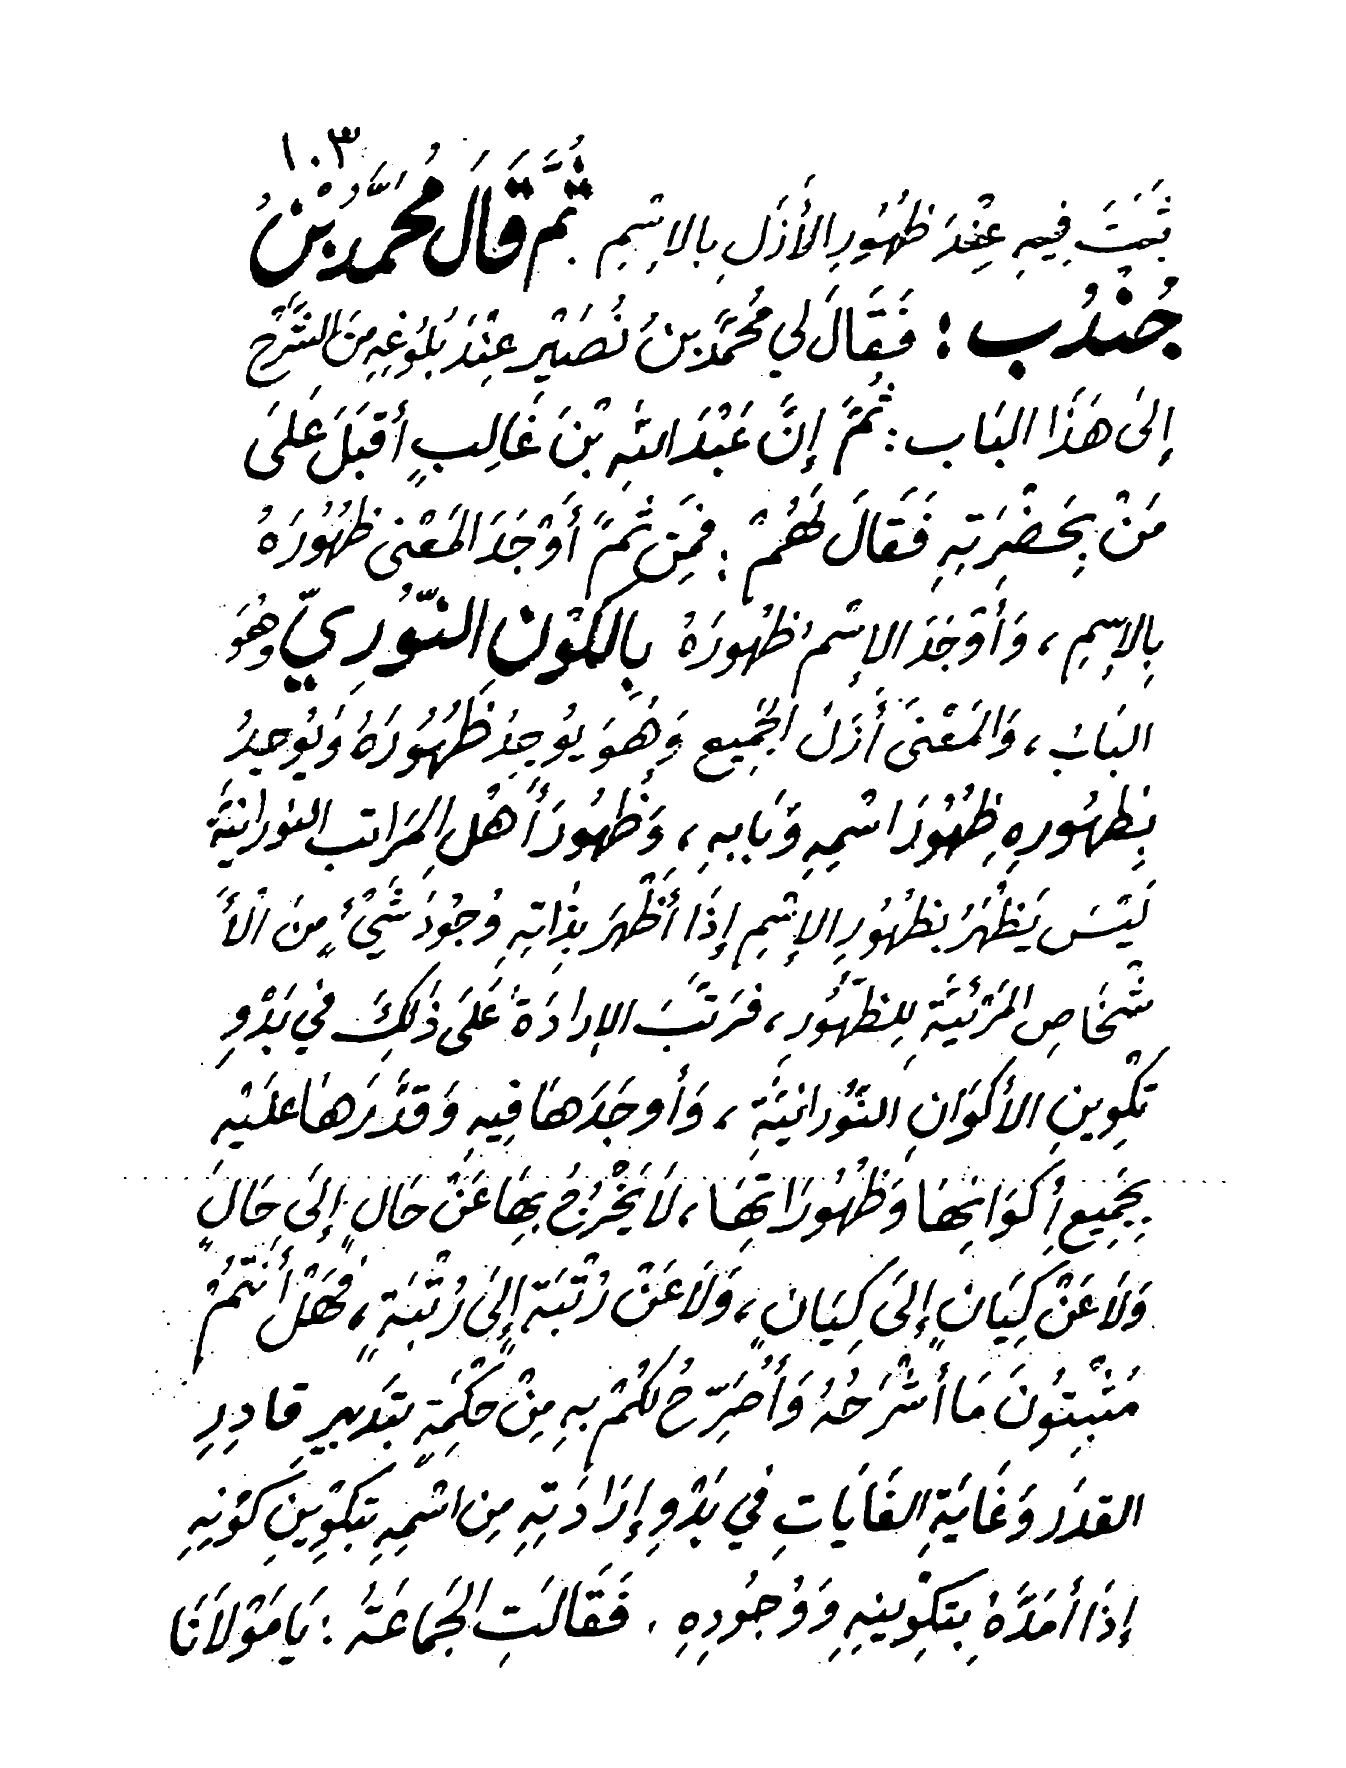 ١٠٣
ثَبَتَ فِيهِ عِنْدَ ظُهُورِ الأَزَلِ بِالاِسْمِ . ثُمَّ قَالَ مُحَمَّدُ بْنُ
جُنْدُبٍ : فَقَالَ لِي مُحَمَّدُ بنُ نُصَيْرٍ عِنْدَ بُلُوغِهِ مِنَ الشَّرْحِ
إِلىَ هَذَا البَابِ : ثُمَّ إِنَّ عَبْدَ اللهِ بْنَ غَالِبٍ أَقبَلَ عَلىَ
مَنْ بِحَضْرَتِهِ فَقَالَ لَهُمْ : فَمِن ثَمَّ أَوْجَدَ المَعْنى ظُهُورَهُ
بِالاِسمِ ، وَأَوْجَدَ الاِسْمُ ظُهُورَهُ بِالكَوْنِ النُّورِيِّ وَهُوَ
البَابُ ، وَالمَعْنىَ أَزَلُ الجَمِيعِ وَهُوَ يُوجِدُ ظُهُورَهُ وَيُوجِدُ
بِظهُورِهِ ظُهُورَ اسْمِهِ وَبَابِهِ ، وَظُهُورَ أَهْلِ المَرَاتبِ النورَانِيَّةِ
لَيْسَ يَظْهَرُ بِظهُورِ الاِسْمِ إِذَا أَظْهَرَ بِذَاتِهِ وُجُودَ شَيْءٍ مِنَ الأَ
شْخَاصِ المَرْئِيَّةِ لِلظّهُورِ ، فَرَتَّبَ الإِرَادَةَ عَلَىَ ذَٰلِكَ في بَدْوِ
تَكْوِينِ الأَكوَانِ النُّورَانِيَّةِ ، وَأَوجَدَهَا فِيهِ وَقَدَّرَهَا عَلَيْهِ
بِجَمِيعِ أَكوَانِهَا وَظُهُورَاتِهَا ، لاَ يَخْرُجُ بِهَا عَنْ حَالٍ إِلىَ حَالٍ
وَلاَ عَنْ كِيَانٍ إِلىَ كِيَانٍ ، وَلاَ عَنْ رُتْبَةٍ إِلىَ رُتْبَةٍ ، فَهَلْ أَنتُمْ
مُثْبِتُونَ مَا أَشْرَحُهُ وَأُصَرِّحُ لَكُمْ بِهِ مِنْ حِكْمَةٍ بِتَدبِيرِ قَادِرِ
القدَرِ وَغَايَةِ الغَايَاتِ في بَدْوِ إِرَادَتِهِ مِن اسْمِهِ بِتَكْوِينِ كَوْنِهِ
إِذَا أَمَدَّهُ بِتَكْوِينِهِ وَوُجُودِهِ . فَقَالَتِ الجَمَاعَةُ : يَا مَوْلاَنَا